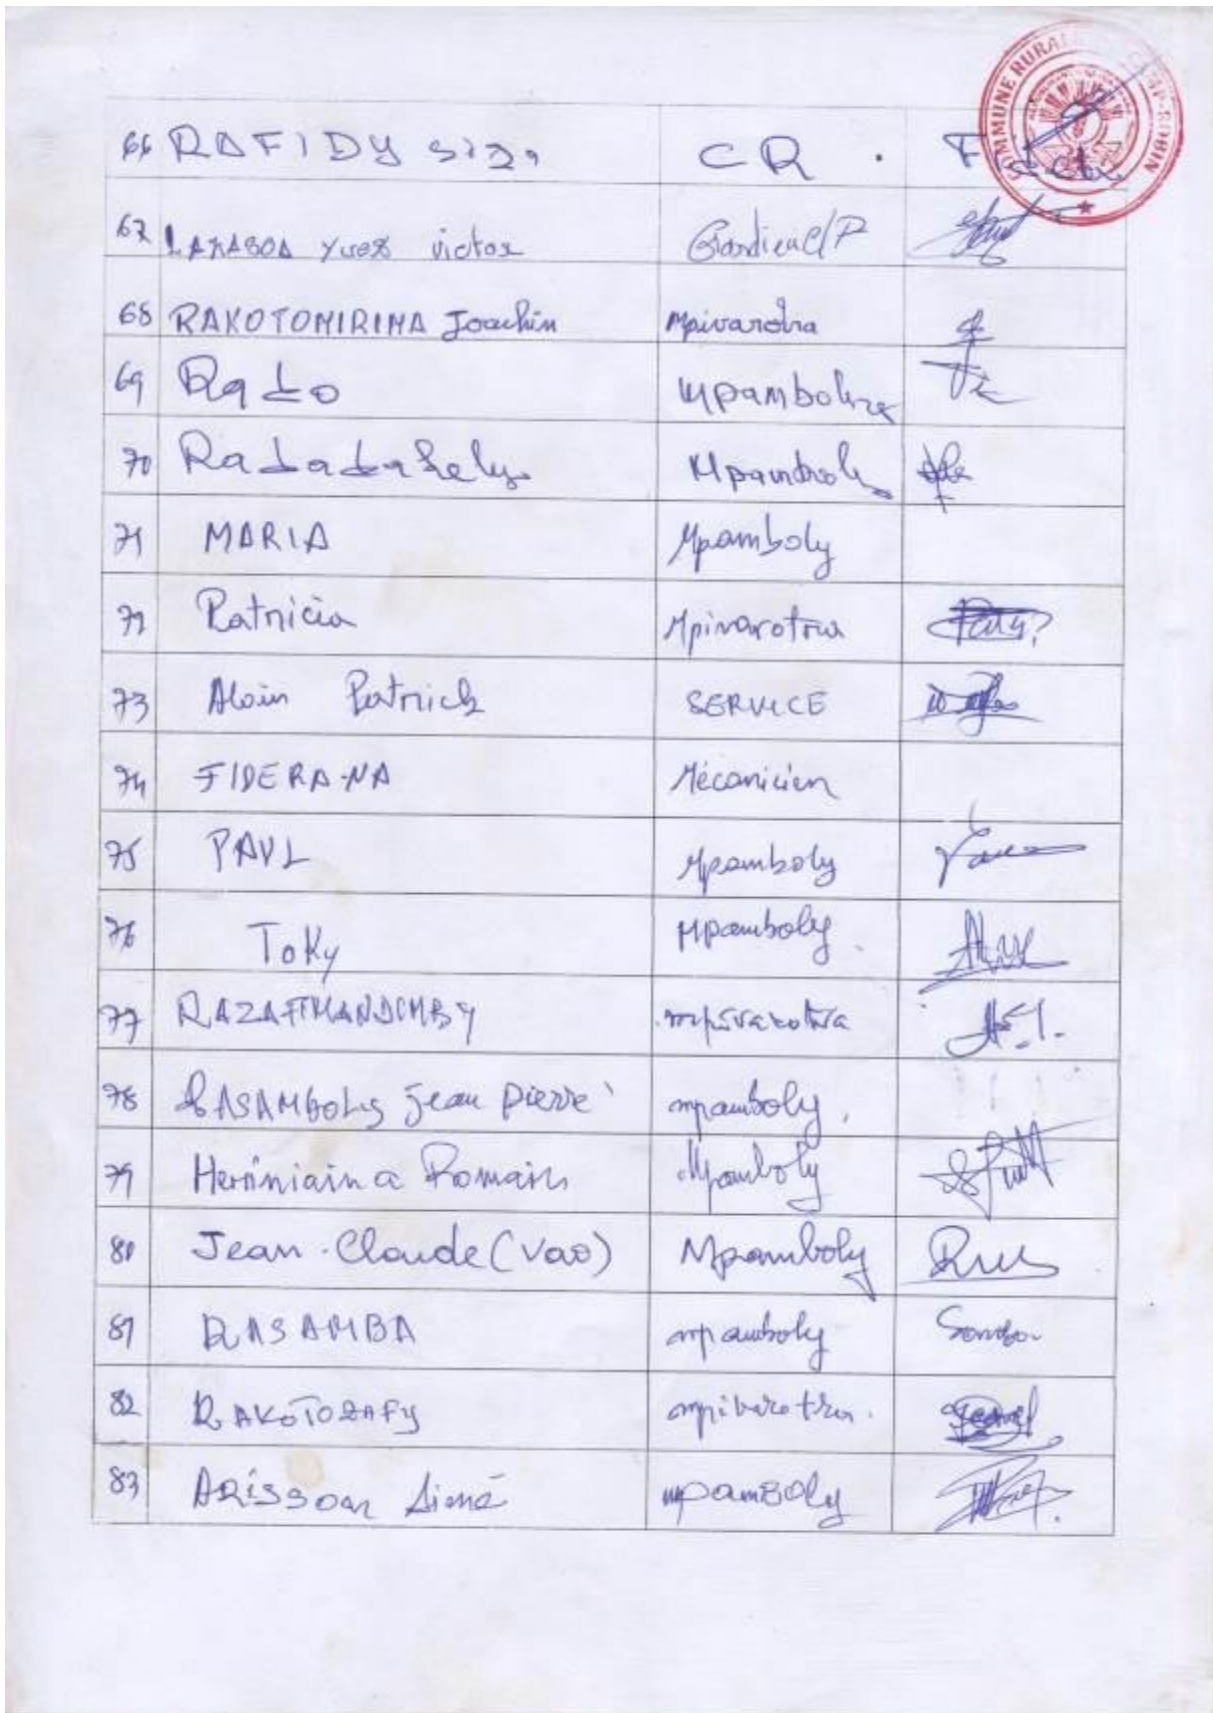 COMMUNE RURALE
66 RAFIDY CR
67 Yvez victor
68 RAKOTOMIRINA Joachin Mpivarotra
69 Rado Mpamboly
70 Mpamboly
71 MARIA Mpamboly
72 Patricia Mpivarotra
73 Alain Patrick SERVICE
74 FIDERA-NA Mécanicien
75 PAUL Mpamboly
76 Toky Mpamboly
77 RAZAFIMANDIMBY mpivarotra
78 RASAMBOLY Jean Pierre mpamboly
79 Heriniaina Romain Mpamboly
80 Jean-Claude (Vao) Mpamboly
81 RASAMBA mpamboly
82 RAKOTOZAFY mpivarotra.
83 mpamboly